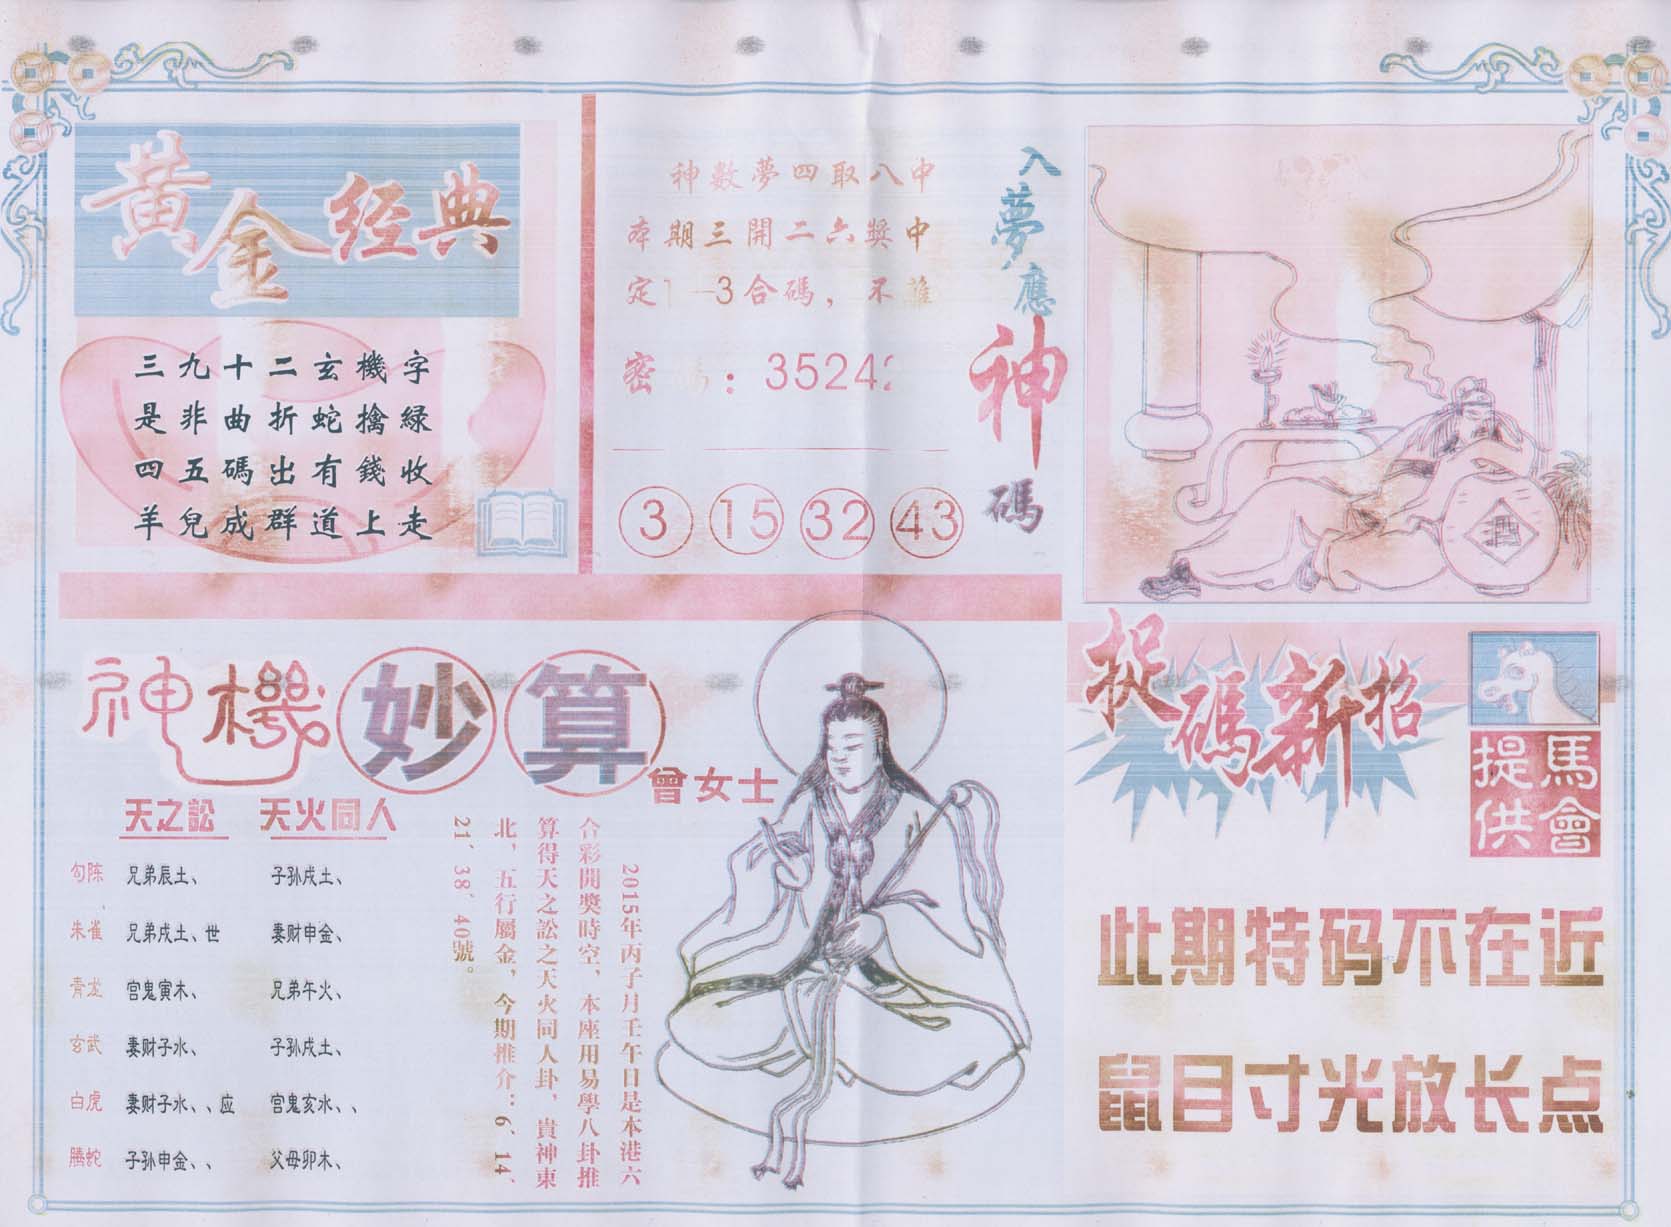 黃金经典
三九十二玄機字
是非曲折蛇擒緑
四五碼出有錢收
羊兒成群道上走
神數夢四取八中
本期三開二六獎中
定1—3合碼，不
密：35242
3 15 32 43
入夢應神碼
酒
神機妙算
曾女士
天之訟 天火同人
勾陈 兄弟辰土、 子孙戌土、
朱雀 兄弟戌土、世 妻财申金、
青龙 宫鬼寅木、 兄弟午火、
玄武 妻财子水、 子孙戌土、
白虎 妻财子水、、应 宫鬼亥水、、
腾蛇 子孙申金、、 父母卯木、
2015年丙子月壬午日是本港六
合彩開獎時空，本座用易學八卦推
算得天之訟之天火同人卦，貴神東
北，五行屬金，今期推介：6、14、
21、38、40號。
捉碼新招
馬會提供
此期特码不在近
鼠目寸光放长点